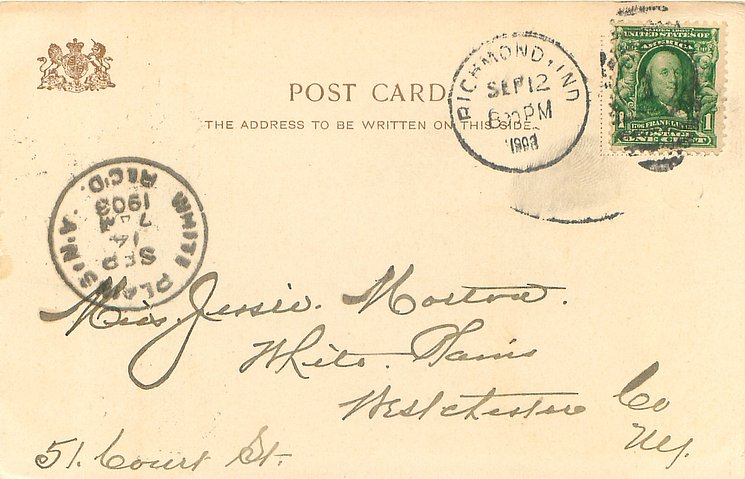 POST CARD
THE ADDRESS TO BE WRITTEN ON THIS SIDE.
RICHMOND, IND
SEP 12
PM
SERIES 1902
UNITED STATES OF
AMERICA
1 FRANKLIN 1
POSTAGE
ONE CENT
WHITE PLAINS N.Y.
SEP
14
7
1903
REC'D.
Miss. Jessie.
White. Plains
Westchester Co
NY.
51. Court St.